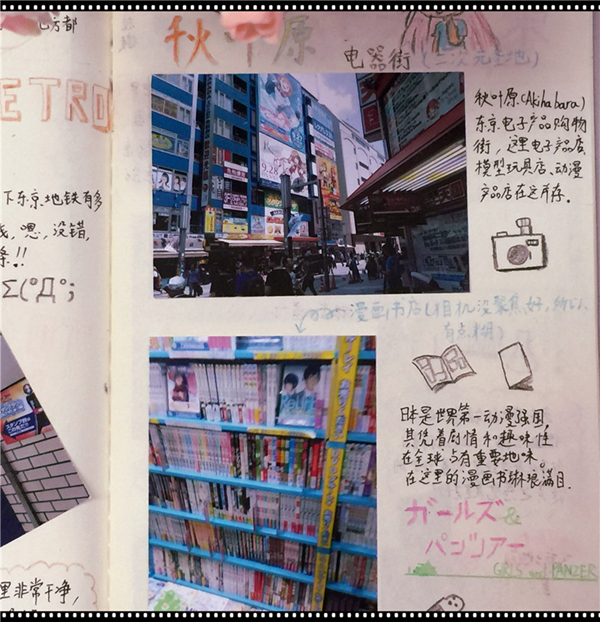 方都
ETRO
下东京地铁有多
嗯,没错,
!!
Σ(°Д°;
里非常干净,
秋叶原
电器街(二次元圣地)
秋叶原(Akihabara)
东京电子产品购物
街,这里电子产品店
模型玩具店、动漫
产品店在这并存。
9.28
漫画书店(相机没聚焦好,所以
有点糊)
日本是世界第一动漫强国,
其凭着剧情和趣味性
在全球占有重要地味。
在这里的漫画书琳琅满目.
ガールズ&
パンツァー
GIRLS und PANZER